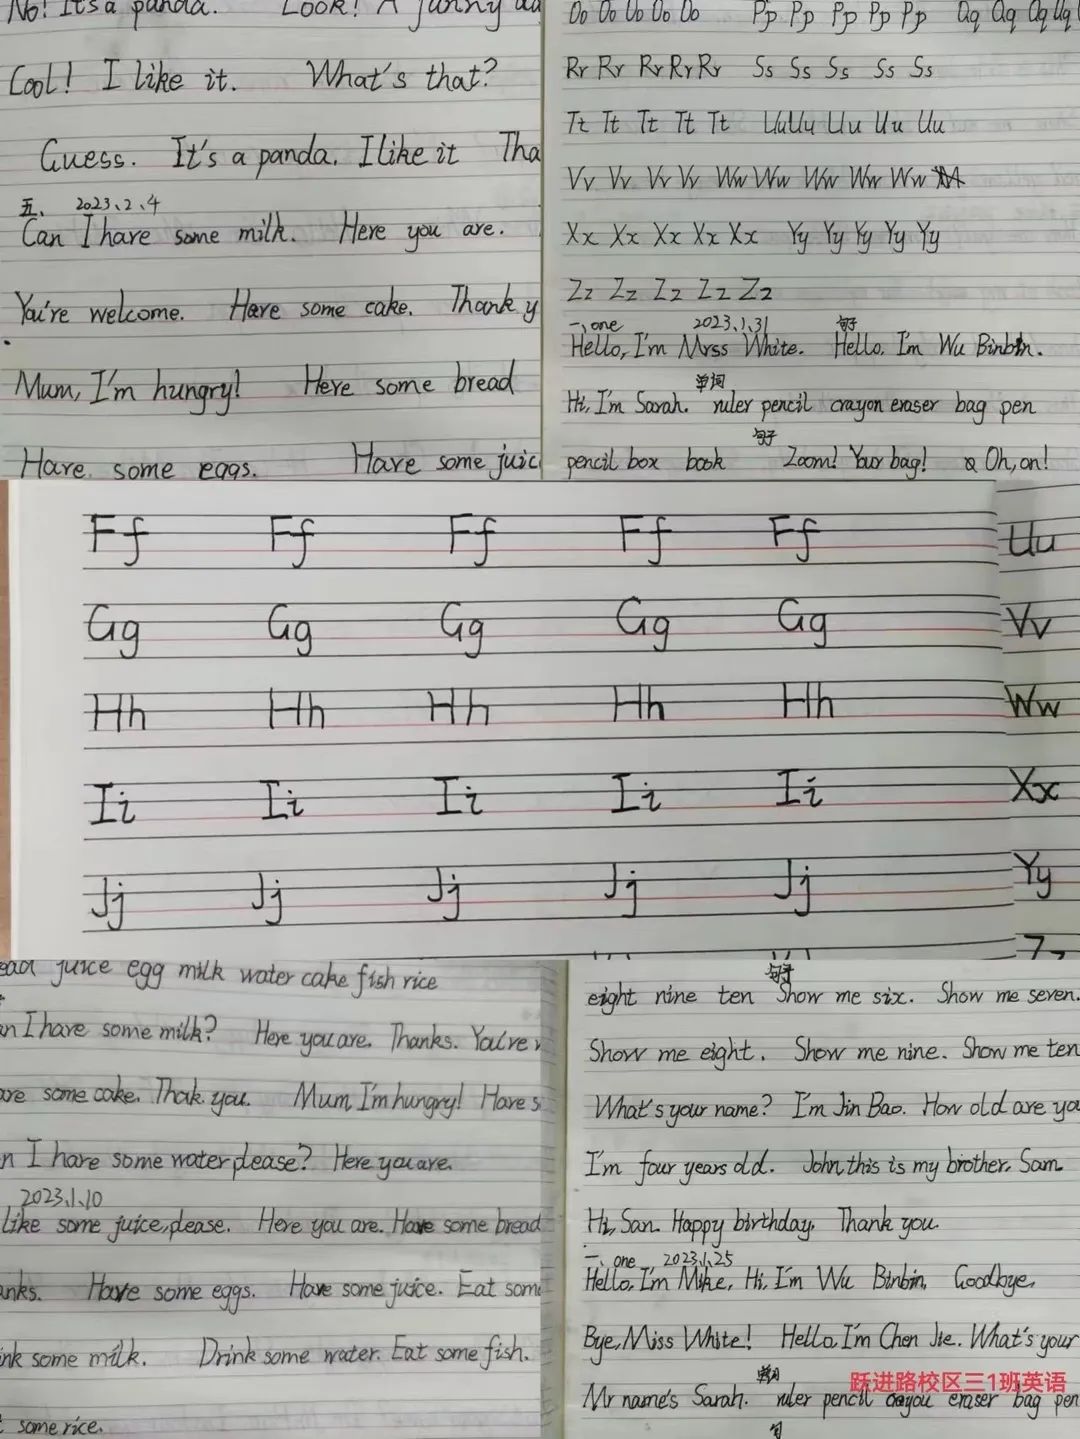 No! It's a panda. Look! A funny
Cool! I like it. What's that?
Guess. It's a panda. I like it Tha
五、 2023.2.4
Can I have some milk. Here you are.
You're welcome. Have some cake. Thank y
Mum, I'm hungry! Here some bread
Have some eggs. Have some juic
Oo Oo Oo Oo Oo Pp Pp Pp Pp Pp Qq Qq Qq Qq
Rr Rr Rr Rr Rr Ss Ss Ss Ss Ss
Tt Tt Tt Tt Tt Uu Uu Uu Uu Uu
Vv Vv Vv Vv Ww Ww Ww Ww Ww
Xx Xx Xx Xx Xx Yy Yy Yy Yy Yy
Zz Zz Zz Zz Zz
一、one 2023.1.31 句子
Hello, I'm Mrss White. Hello, I'm Wu Binbin.
单词
Hi, I'm Sarah. ruler pencil crayon eraser bag pen
句子
pencil box book Zoom! Your bag! Oh, on!
Ff Ff Ff Ff Ff Uu
Gg Gg Gg Gg Gg Vv
Hh Hh Hh Hh Hh Ww
Ii Ii Ii Ii Ii Xx
Jj Jj Jj Jj Jj Yy
Zz
ead juice egg milk water cake fish rice
an I have some milk? Here you are. Thanks. You're
ave some cake. Thak you. Mum, I'm hungry! Have s
n I have some water please? Here you are.
2023.1.10
like some juice, please. Here you are. Have some bread
anks. Have some eggs. Have some juice. Eat some
ink some milk. Drink some water. Eat some fish.
some rice.
句子
eight nine ten Show me six. Show me seven.
Show me eight. Show me nine. Show me ten
What's your name? I'm Jin Bao. How old are you
I'm four years old. John, this is my brother, Sam.
Hi, San. Happy birthday. Thank you.
一、one 2023.1.25
Hello, I'm Mike, Hi, I'm Wu Binbin, Goodbye,
Bye, Miss White! Hello, I'm Chen Jie. What's your
单词
Mr name's Sarah. ruler pencil eraser bag pen
句
跃进路校区三1班英语